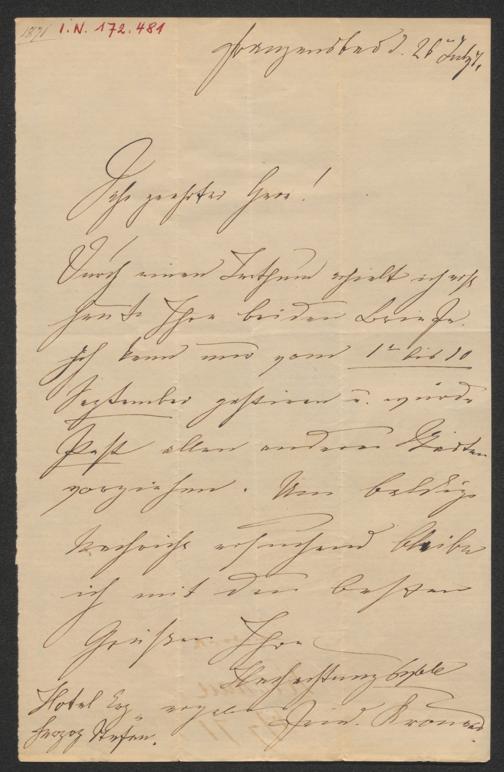 1871 I.N. 172.481
Franzensbad d. 26 July
Sehr geehrter Herr!
Durch einen Irrthum erhielt ich erst
heute Ihre beiden Briefe.
Ich kann nur vom 1ten bis 10
September gastiren u. würde
Pest allen anderen Städten
vorziehen. Um baldige
Nachricht ersuchend bleibe
ich mit den besten
Grüßen Ihr
Hochachtungsvoll
Hotel Erz
herzog Stefan.